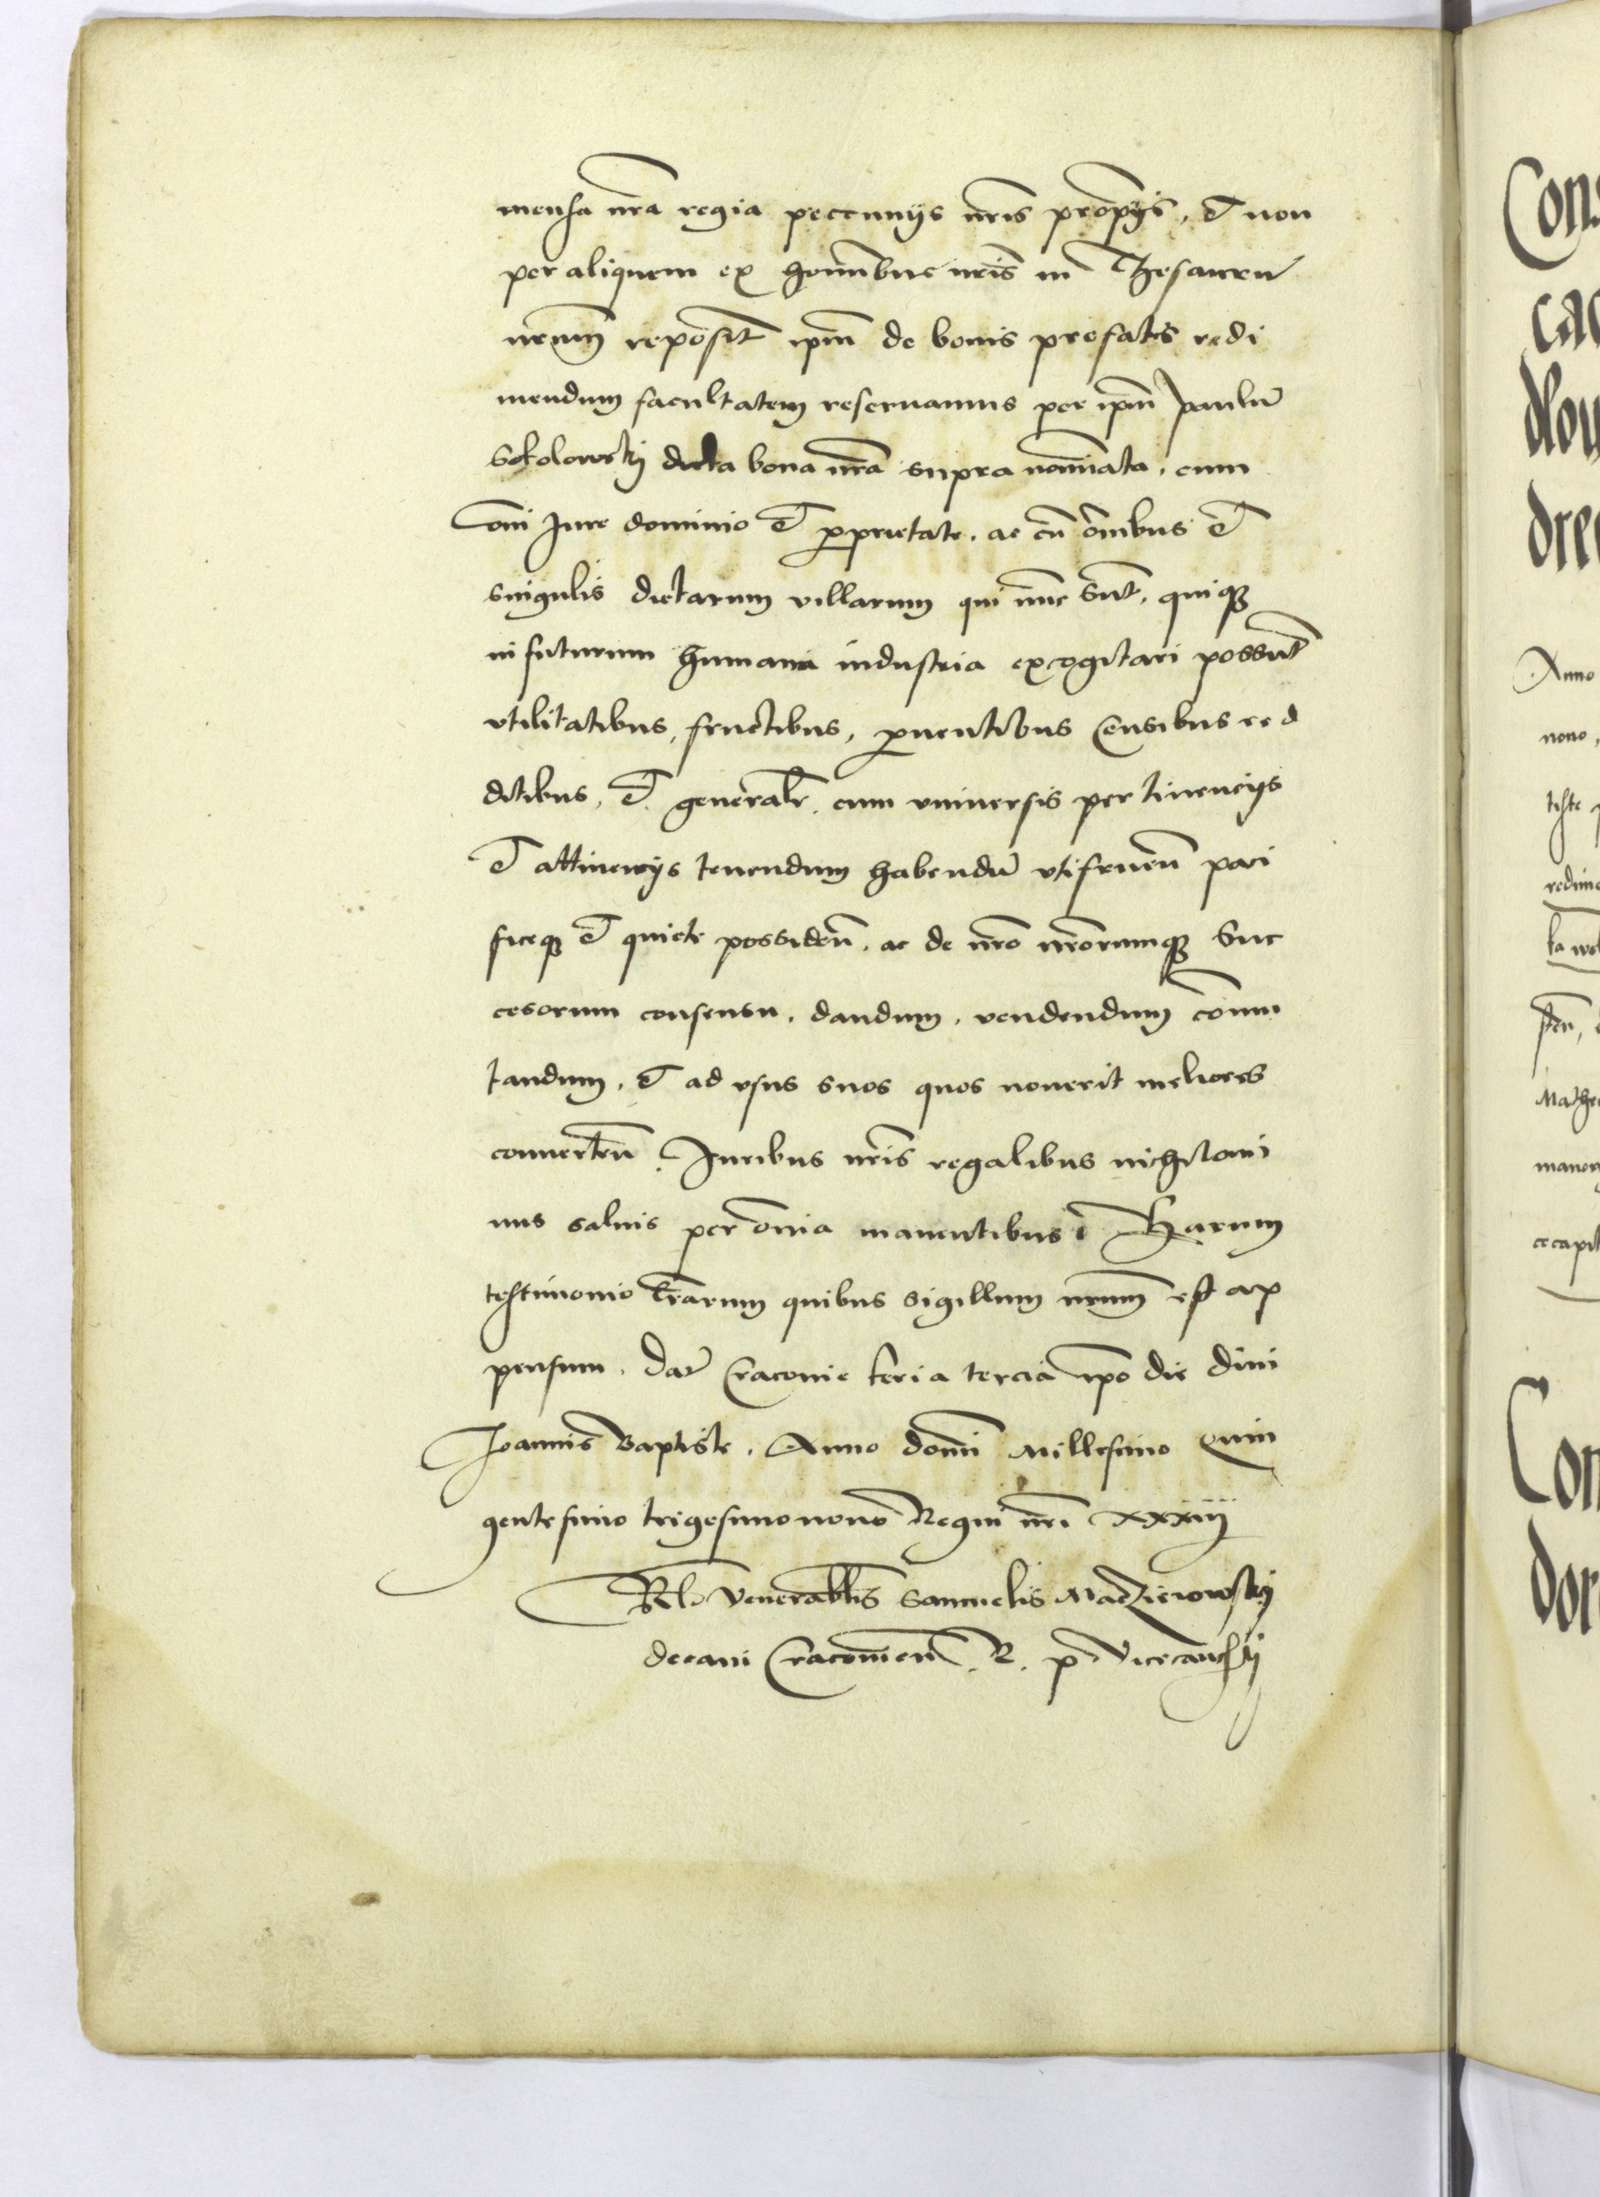 mensa nra regia peccunijs nris propijs, et non
per aliquem ex hominibus nris in Thesaurū
nrum reposit ipm de bonis prefatis redi
mendum facultatem reservamus per ipm Paulū
Sokolowskij dicta bona nra supra nominata, cum
omi Iure dominio et proprietate, ac cū omibus et
singulis dictarum villarum qui nunc sunt, quiqz
in futurum humana industria excogitari possunt
vtilitatibus, fructibus, proventibus Censibus red
ditibus, et generalr cum vniversis pertinencijs
et attinencijs tenendum habendū vtifruen paci
ficeqz et quiete possiden, ac de nro nrorumqz Suc
cesorum consensu, dandum, vendendum comu
tandum, et ad vsus suos quos noverit meliores
converten. Iuribus nris regalibus nichilomi
nus salvis per omia manentibus Harum
testimonio lrarum quibus sigillum nrum est ap
pensum. Dat Cracovie feria tercia ipo die divi
Joannis Baptiste. Anno domi Millesimo Quin
gentesimo trigesimonono Regni nri XXXiij
Rl. Venerablis Samuelis Macziejowskij
decani Cracovien. R. p. Vicecancrij
Cons
cac
dlou
dre
Anno
nono,
teste
redime
ta
Mathe
maner
ce capit
Con
dor